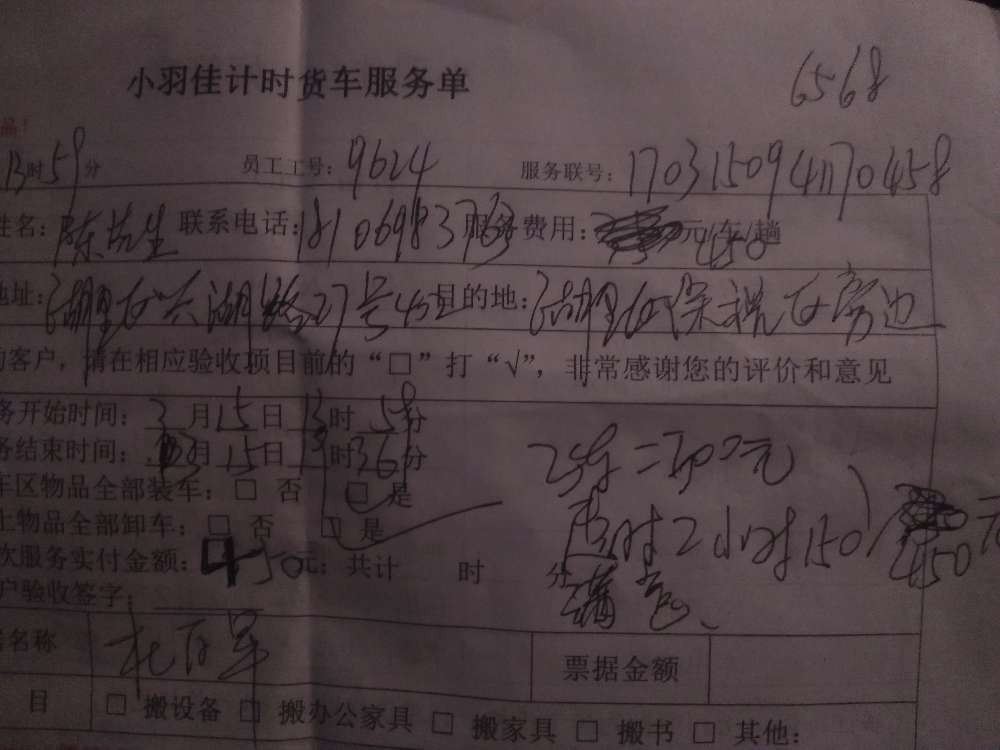 小羽佳计时货车服务单
6568
品!
13时59分 员工工号: 9624 服务联号: 1703150941170458
姓名: 陈先生 联系电话: 18106983763 服务费用: 450元/车/趟
地址: 湖里区兴湖路27号 目的地: 湖里区保税区旁边
的客户，请在相应验收项目前的“□”打“√”，非常感谢您的评价和意见
务开始时间: 3月15日13时58分
务结束时间: 3月15日 时36分 2车=300元
车区物品全部装车: □ 否 □ 是
上物品全部卸车: □ 否 □ 是 超时2小时150 450元
次服务实付金额: 450元; 共计 时 分
满意、
户验收签字:
名称 票据金额
目 □ 搬设备 □ 搬办公家具 □ 搬家具 □ 搬书 □ 其他: